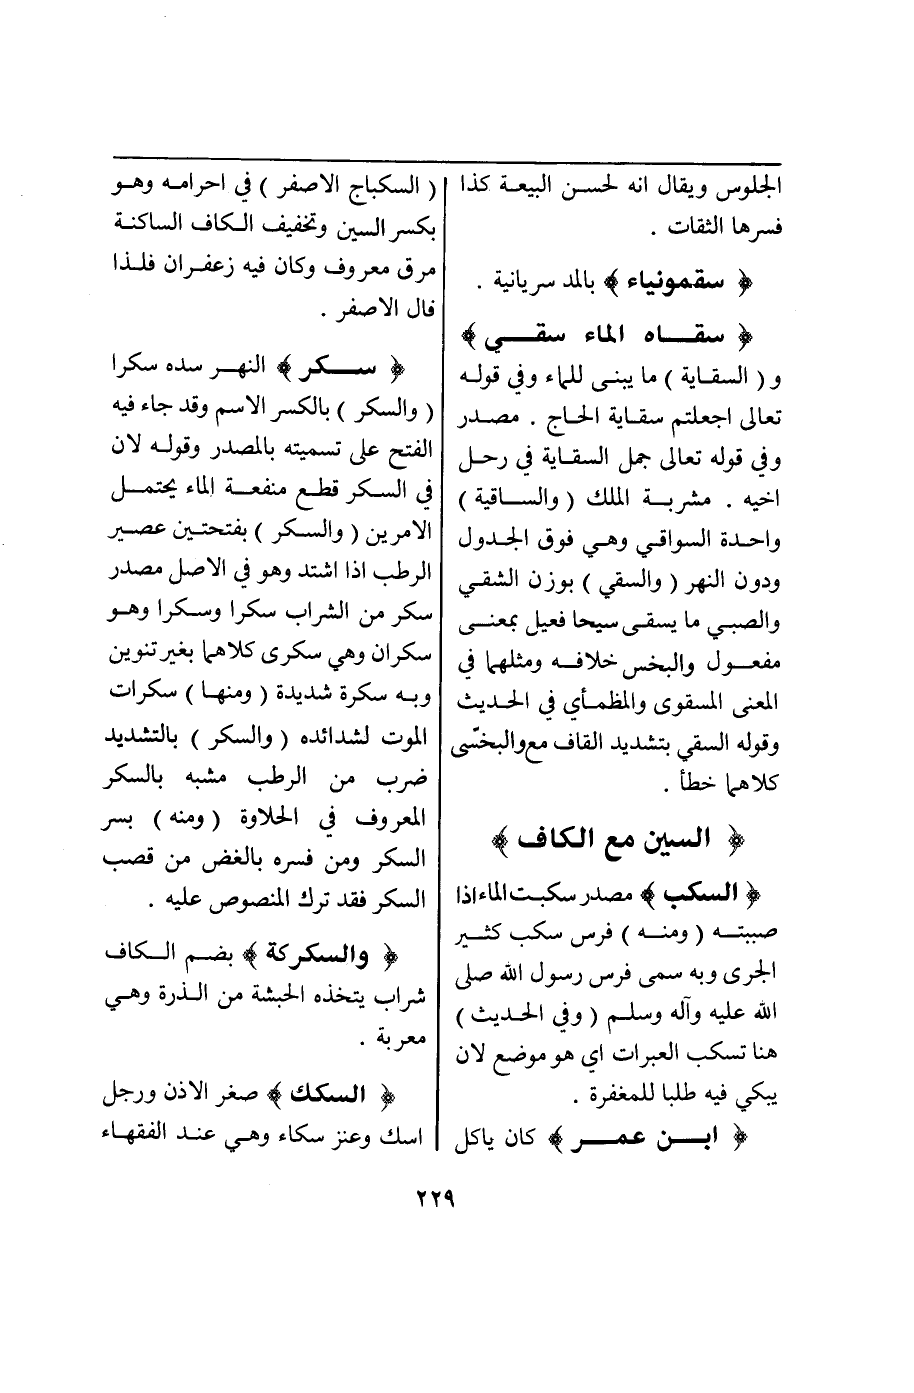 الجلوس ويقال انه لحسن البيعة كذا
فسرها الثقات .
﴿ سقمونياء ﴾ بالمد سريانية .
﴿ سقاه الماء سقي ﴾
و ( السقاية ) ما يبنى للماء وفي قوله
تعالى اجعلتم سقاية الحاج . مصدر
وفي قوله تعالى جمل السقاية في رحل
اخيه . مشربة الملك ( والساقية )
واحدة السواقي وهي فوق الجدول
ودون النهر ( والسقي ) بوزن الشقي
والصبي ما يسقى سيحا فعيل بمعنى
مفعول والبخس خلافه ومثلهما في
المعنى المسقوى والمظمأي في الحديث
وقوله السقي بتشديد القاف مع والبخسّى
كلاهما خطأ .
﴿ السين مع الكاف ﴾
﴿ السكب ﴾ مصدر سكبت الماء اذا
صببته ( ومنه ) فرس سكب كثير
الجرى وبه سمى فرس رسول الله صلى
الله عليه وآله وسلم ( وفي الحديث )
هنا تسكب العبرات اي هو موضع لان
يبكي فيه طلبا للمغفرة .
﴿ ابن عمر ﴾ كان ياكل
( السكباج الاصفر ) في احرامه وهو
بكسر السين وتخفيف الكاف الساكنة
مرق معروف وكان فيه زعفران فلذا
قال الاصفر .
﴿ سكر ﴾ النهر سده سكرا
( والسكر ) بالكسر الاسم وقد جاء فيه
الفتح على تسميته بالمصدر وقوله لان
في السكر قطع منفعة الماء يحتمل
الامرين ( والسكر ) بفتحتين عصير
الرطب اذا اشتد وهو في الاصل مصدر
سكر من الشراب سكرا وسكرا وهو
سكران وهي سكرى كلاهما بغير تنوين
وبه سكرة شديدة ( ومنها ) سكرات
الموت لشدائده ( والسكر ) بالتشديد
ضرب من الرطب مشبه بالسكر
المعروف في الحلاوة ( ومنه ) بسر
السكر ومن فسره بالغض من قصب
السكر فقد ترك المنصوص عليه .
﴿ والسكركة ﴾ بضم الكاف
شراب يتخذه الحبشة من الذرة وهي
معربة .
﴿ السكك ﴾ صغر الاذن ورجل
اسك وعنز سكاء وهي عند الفقهاء
٢٢٩